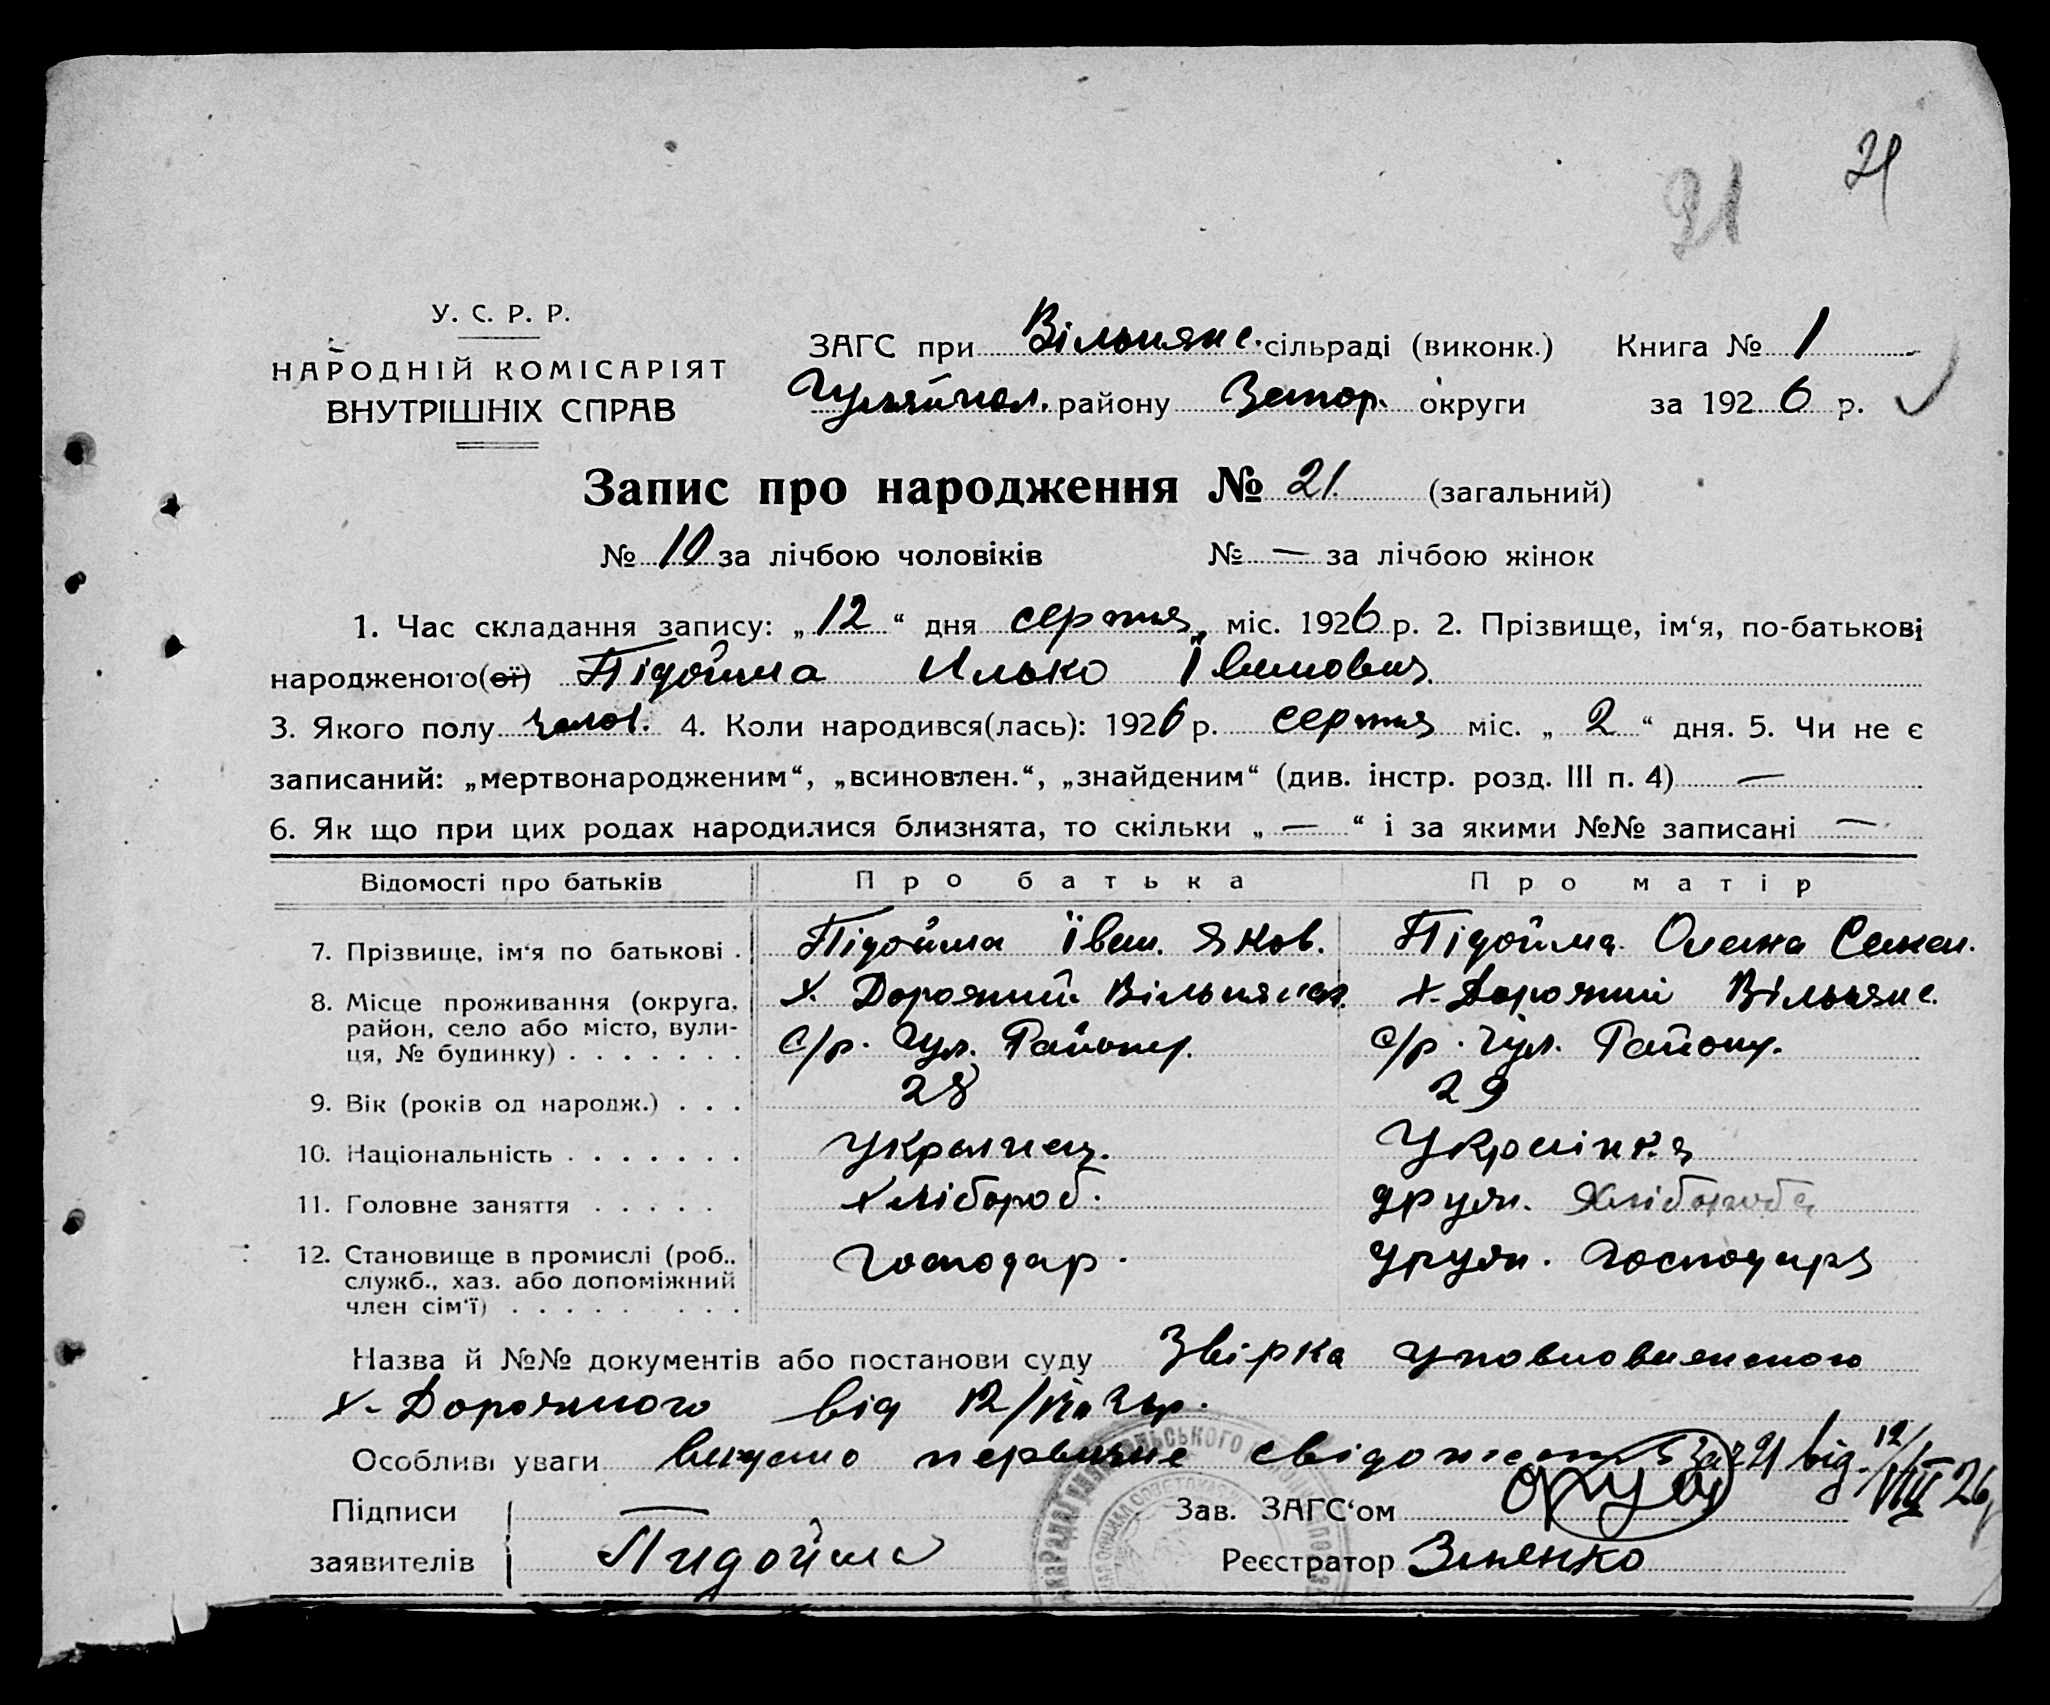 21
21
У. С. Р. Р.
НАРОДНІЙ КОМІСАРІЯТ
ВНУТРІШНІХ СПРАВ
ЗАГС при Вільнянс. сільраді (виконк.) Книга № 1
Гуляйпол. району Запор. округи за 1926 р.
Запис про народження № 21. (загальний)
№ 10 за лічбою чоловіків № — за лічбою жінок
1. Час складання запису: „12“ дня серпня міс. 1926 р. 2. Прізвище, ім‘я, по-батькові
народженого(ої) Підойма Илько Іванович
3. Якого полу чолов. 4. Коли народився(лась): 1926 р. серпня міс. „2“ дня. 5. Чи не є
записаний: „мертвонародженим“, „всиновлен.“, „знайденим“ (див. інстр. розд. III п. 4) —
6. Як що при цих родах народилися близнята, то скільки „—“ і за якими №№ записані —
Відомості про батьків Про батька Про матір
7. Прізвище, ім‘я по батькові . Підойма Іван. Яков. Підойма Олена Семен.
8. Місце проживання (округа, район, село або місто, вулиця, № будинку) х. Дорожний Вільнянс. х. Дорожний Вільнянс.
с/р. Гул. Району. с/р. Гул. Району.
9. Вік (років од народж.) . . . 28 29
10. Національність . . . . . . . Українец. Українка
11. Головне заняття . . . . . Хлібороб. друж. Хлібороба
12. Становище в промислі (роб., служб., хаз. або допоміжний член сім‘ї) Господар. друж. господаря
Назва й №№ документів або постанови суду Звірка уповноваженого
х. Дорожного від 12/VIII 26р.
Особливі уваги видано первичне свідоцтво за № 21 від. 12/VIII 26
Підписи Зав. ЗАГС‘ом
заявителів Пидойма Реєстратор Зіненко